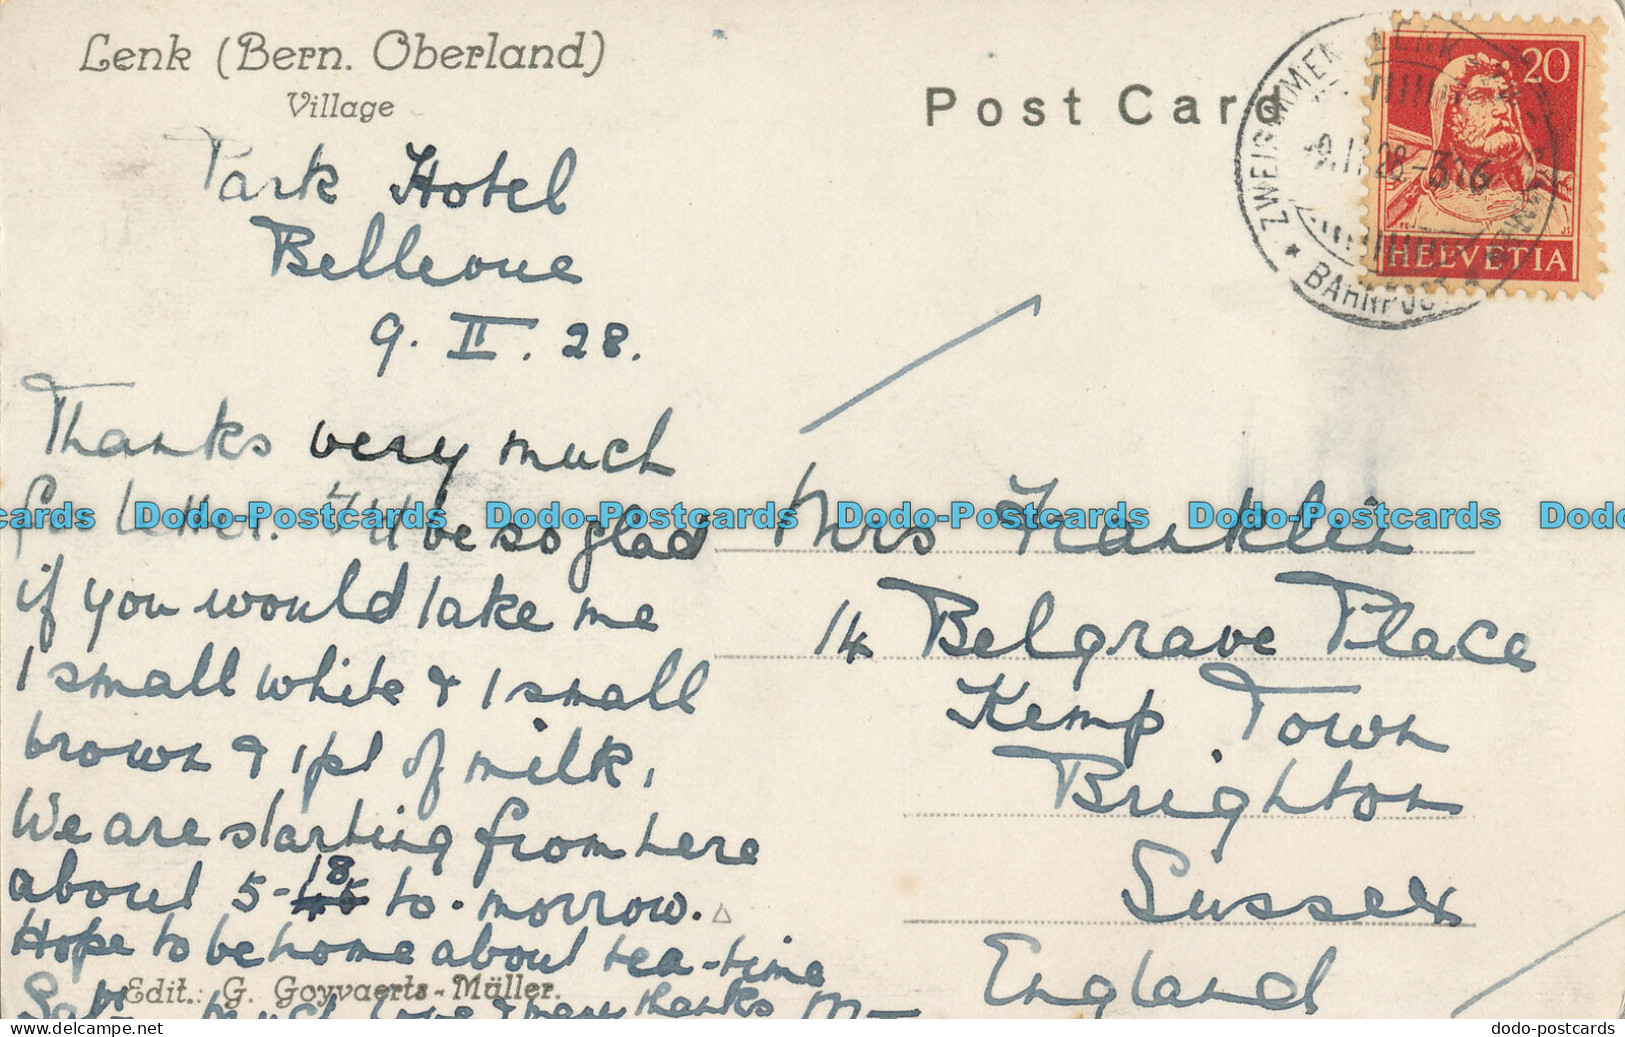 Lenk (Bern. Oberland)
Village
Post Card
ZWEISIMMEN-LENK
BAHNPOST
20
HELVETIA
Park Hotel
Bellevue
9. II. 28.
Thanks very much
for letter. I'd be so glad
if you would take me
1 small white & 1 small
brown & 1 pt of milk.
We are starting from here
about 5-18 to-morrow.
Hope to be home about tea-time
Sat. Much love & many thanks M-
Edit.: G. Goyvaerts-Müller.
Mrs Franklin
14 Belgrave Place
Kemp Town
Brighton
Sussex
England
Dodo-Postcards Dodo-Postcards Dodo-Postcards Dodo-Postcards
dodo-postcards.com
dodo-postcards